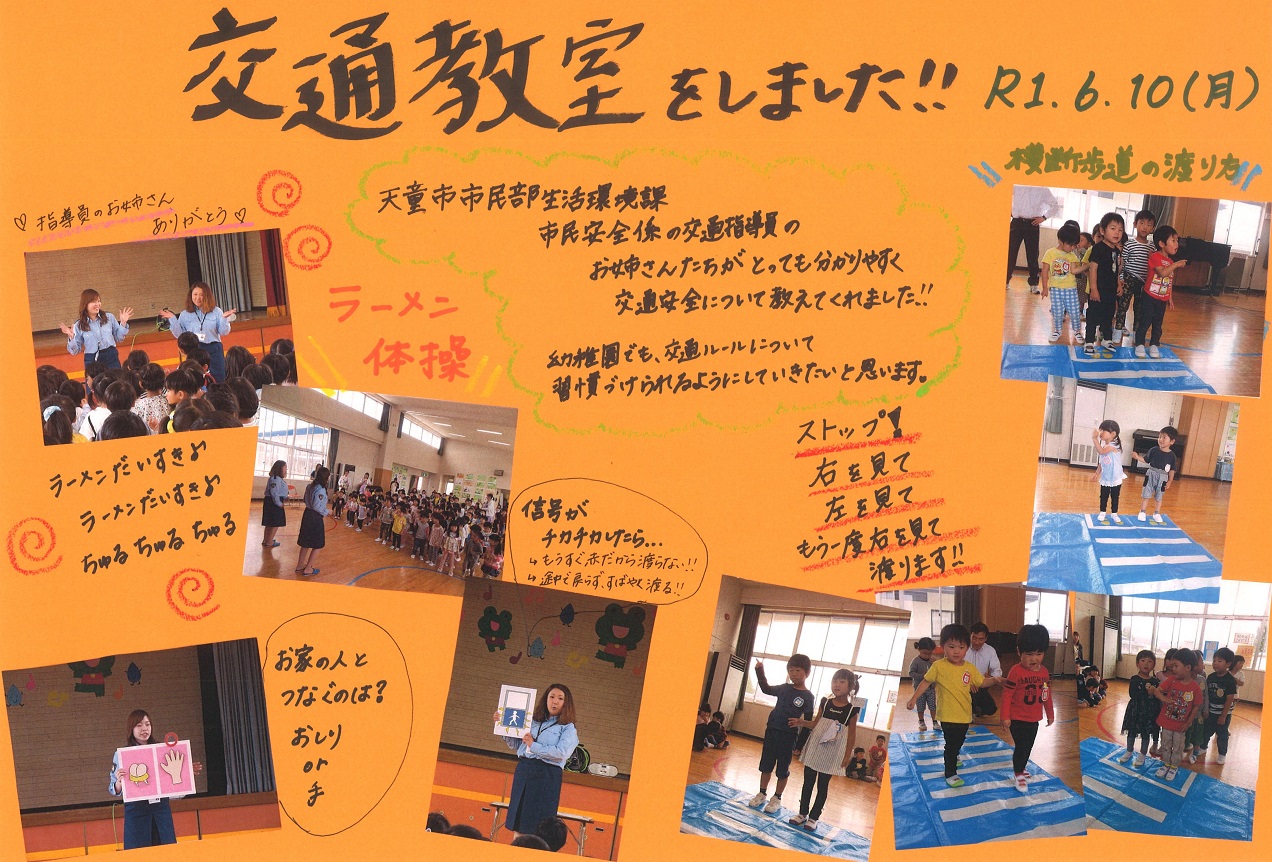 交通教室をしました!! R1.6.10(月)
横断歩道の渡り方
♡ 指導員のお姉さん
ありがとう ♡
天童市市民部生活環境課
市民安全係の交通指導員の
お姉さんたちがとっても分かりやすく
交通安全について教えてくれました!!
幼稚園でも、交通ルールについて
習慣づけられるようにしていきたいと思います。
ラーメン
体操
ラーメンだいすきよ
ラーメンだいすきよ
ちゅるちゅるちゅる
ストップ!
右を見て
左を見て
もう一度右を見て
渡ります!!
信号が
チカチカしたら...
↳もうすぐ赤だから渡らない!!
↳途中で戻らず、すばやく渡る!!
お家の人と
つなぐのは?
おしり
or
手